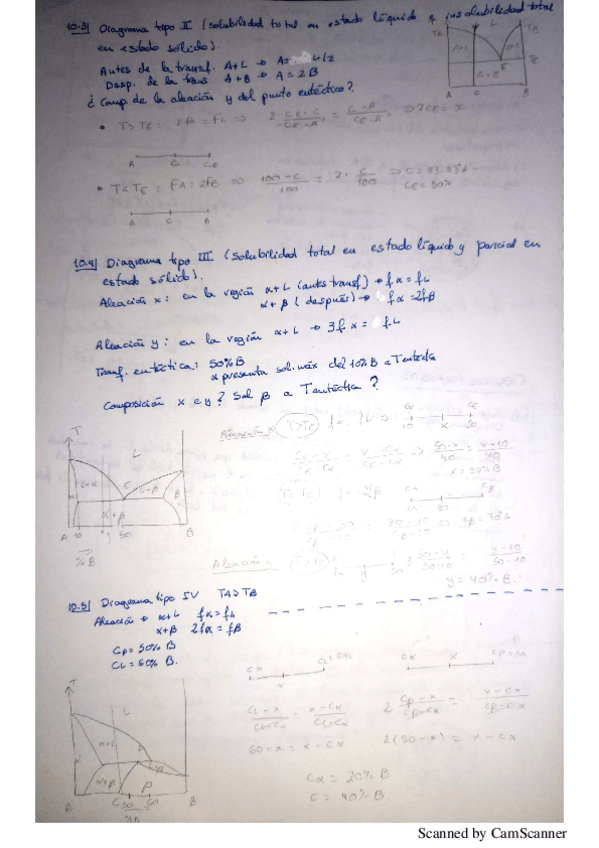 10.3) Diagrama tipo II (solubilidad total en estado líquido e insolubilidad total
en estado sólido).
Antes de la transf. A+L → A= L/2
Desp. de la trans A+B → A=2B
¿Comp de la aleación y del punto eutéctico?
• T>TE: 2FA = FL ⇒ 2 CE-C/CE-A = C-A/CE-A ⇒ 2CE=
A C CE
• T<TE: FA=2FB ⇒ 100-C/100 = 2· C/100 ⇒ C=33.33%
CE=50%
A C B
TA TB
A+L
A+B
E
A C B
10.4) Diagrama tipo III (solubilidad total en estado líquido y parcial en
estado sólido).
Aleación x: en la región α+L (antes transf) → fα=fL
α+β (después) → fα=2fβ
Aleación y: en la región α+L → 3fα= fL
Transf. eutéctica: 50%B
α presenta sol. máx del 10%B a Teutéctica
Composición x e y? Sol β a Teutéctica?
Aleación x T>TE fα=fL ⇒
10 x 50
50-x/40 = x-10/40
x=30%B
T<TE fα=2fβ
Cβ=70%
Aleación y T>TE
3 50-y/50-10 = y-10/50-10
y=40%B.
T
L
L+α
L+β
β
α+β
A 10 y 50 B
%B
10.5) Diagrama tipo IV TA>TB
Aleación → α+L fα=fL
α+β 2fα=fβ
Cβ=50%B
CL=60%B.
Cα x CL=60%
Cα x Cβ=50
CL-x/CL-Cα = x-Cα/CL-Cα
2 Cβ-x/Cβ-Cα = x-Cα/Cβ-Cα
60-x = x-Cα
2(50-x) = x-Cα
Cα=20%B
C=40%B.
T
L
α+L
α
α+β
β
A C 50 B
%B
Scanned by CamScanner